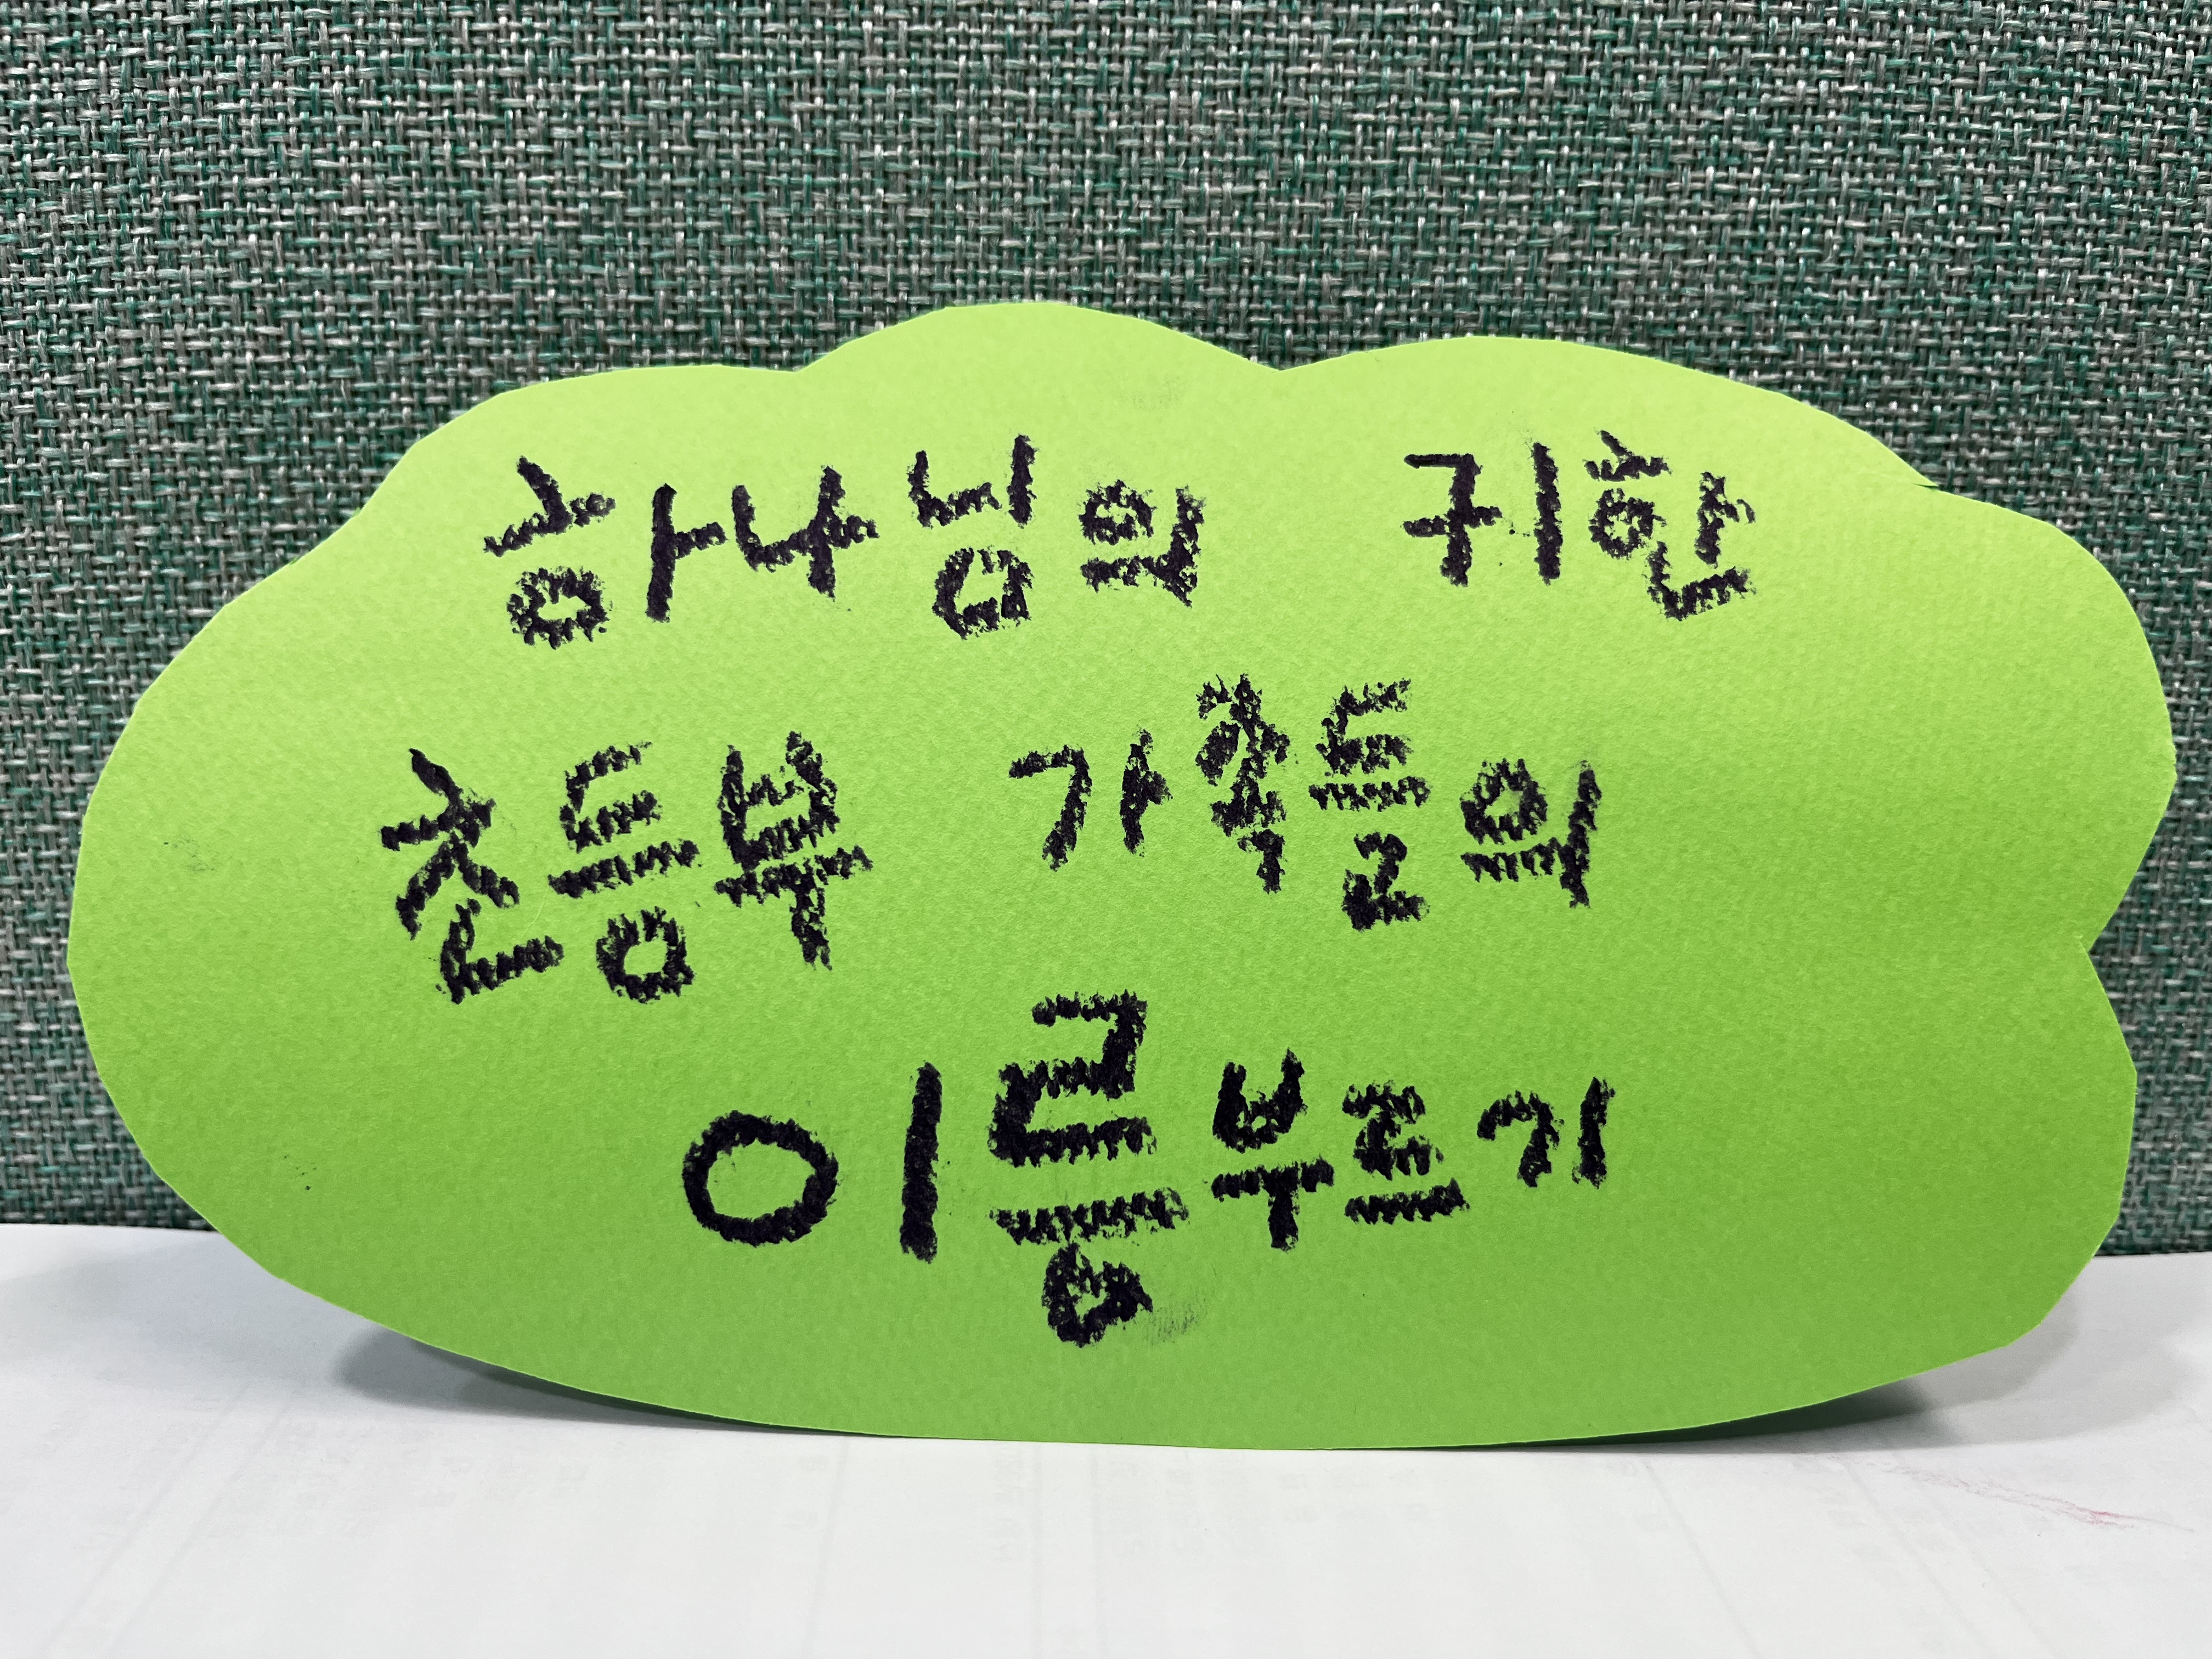 하나님의 귀한
친등부 가족들의
이름부르기